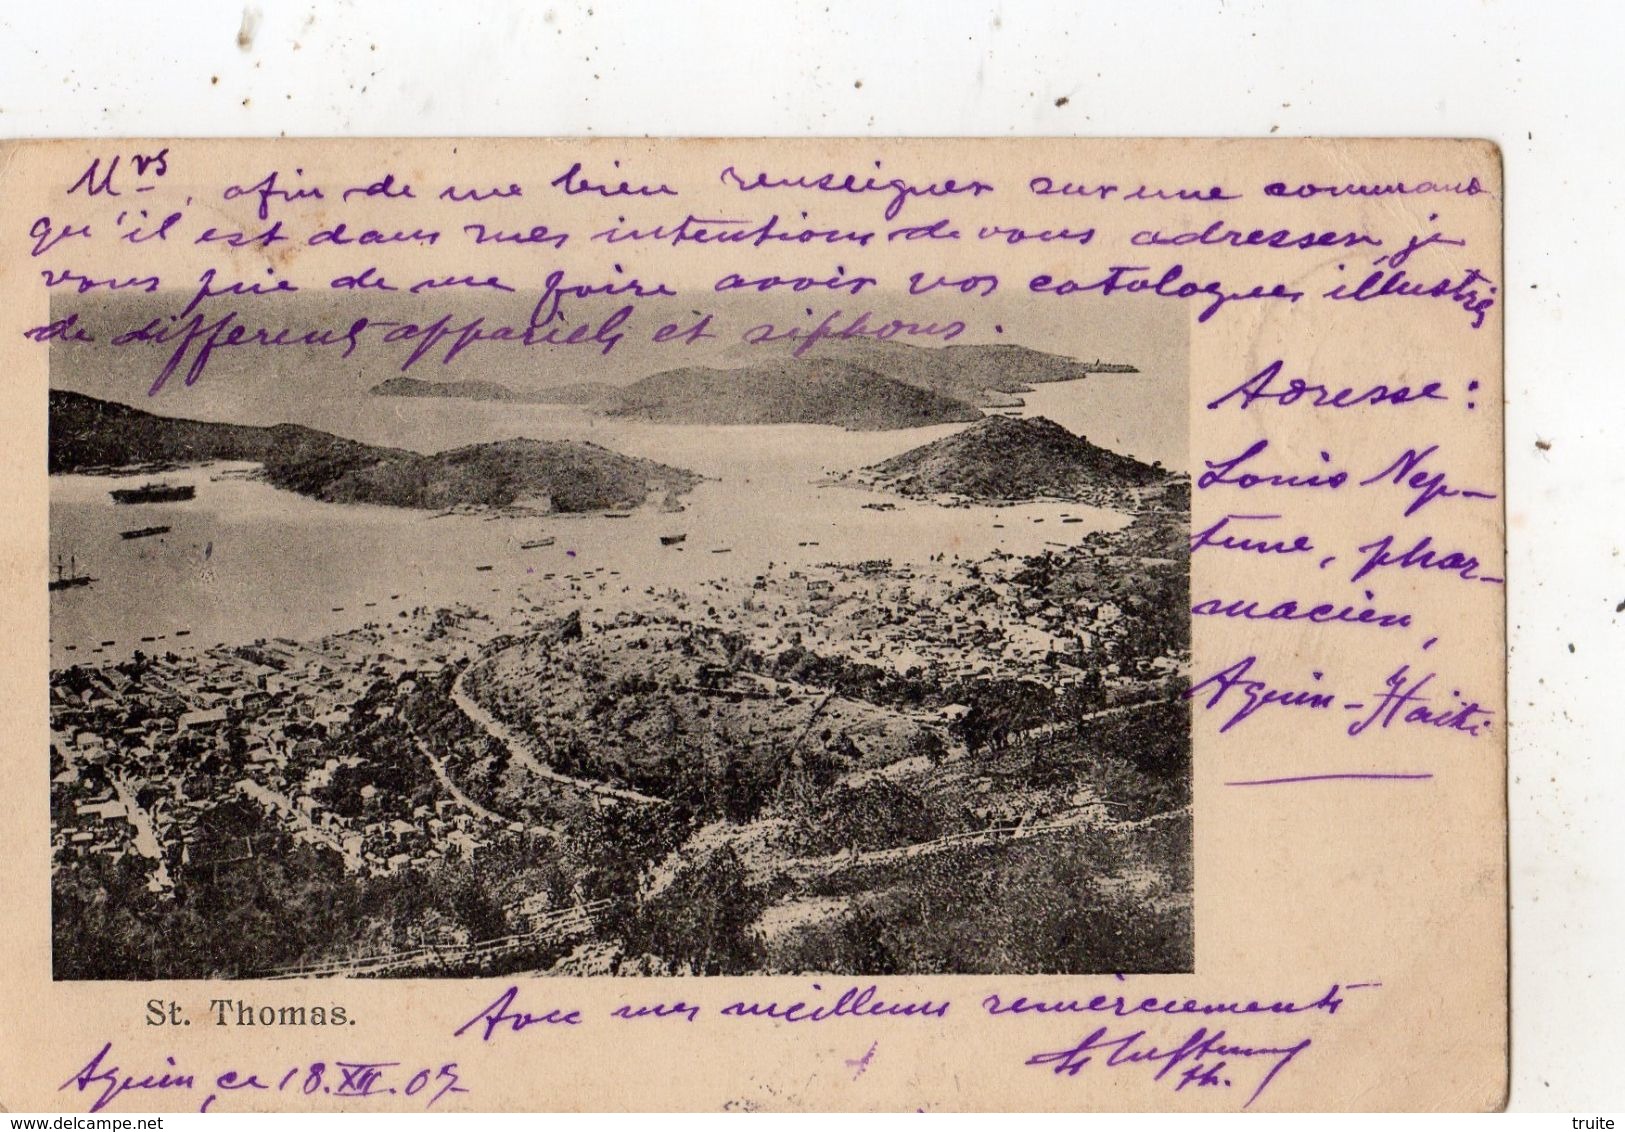 Mrs, afin de me bien renseigner sur une command
qu'il est dans mes intentions de vous adresser je
vous prie de me faire avoir vos catalogues illustrés
de différents appareils et siphons.
Adresse:
Louis Nep-
tune, phar-
macien,
Aquin-Haïti
St. Thomas.
Avec mes meilleurs remerciements
Aquin, ce 18.XII.07
ph.
www.delcampe.net
truite